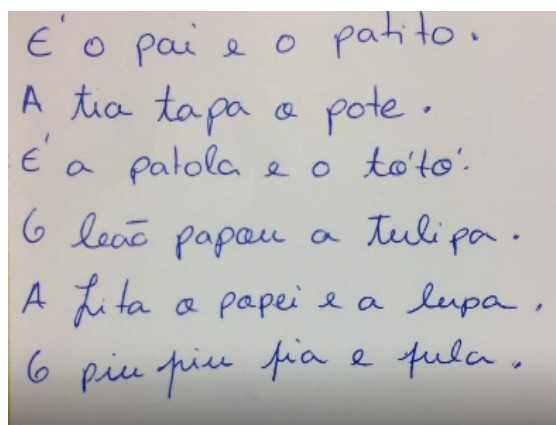 É o pai e o patito.
A tia tapa o pote.
É a patola e o tótó.
O leão papou a tulipa.
A Lita o papei e a lupa.
O piu piu pia e pula.